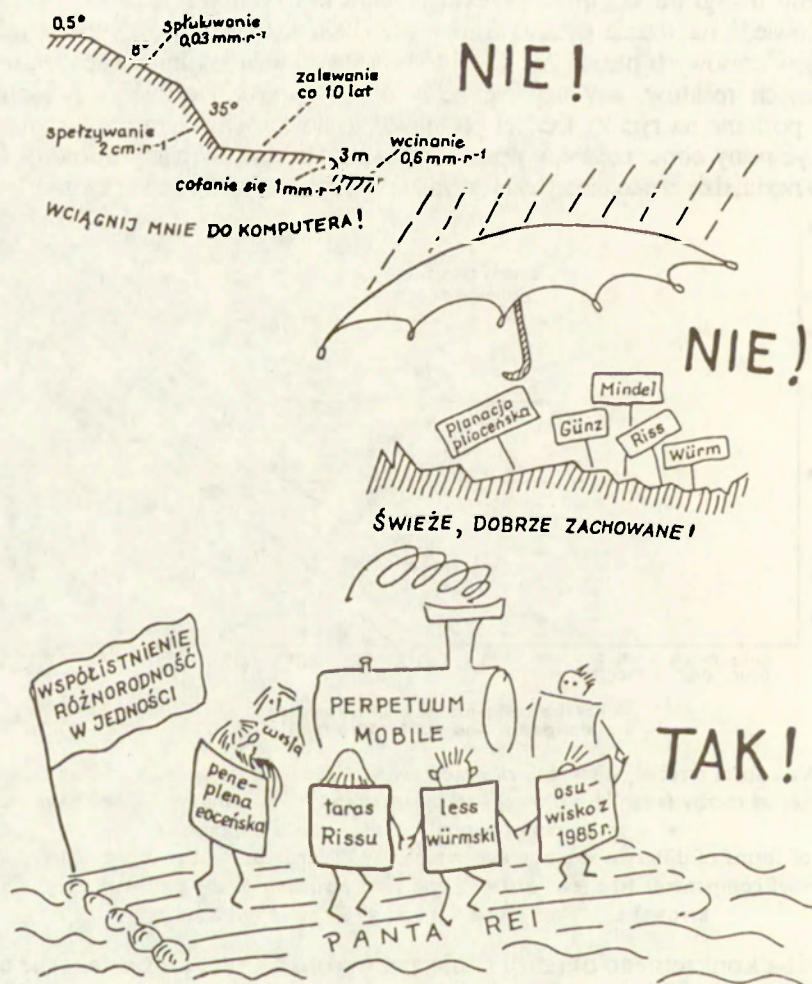 0,5°
spłukiwanie
0,03 mm·r⁻¹
8°
NIE!
zalewanie
co 10 lat
35°
spełzywanie
2 cm·r⁻¹
3 m
wcinanie
0,6 mm·r⁻¹
cofanie się 1 mm·r⁻¹
WCIĄGNIJ MNIE DO KOMPUTERA!
NIE!
Mindel
Planacja
plioceńska
Günz
Riss
Würm
ŚWIEŻE, DOBRZE ZACHOWANE!
WSPÓŁISTNIENIE
RÓŻNORODNOŚĆ
W JEDNOŚCI
PERPETUUM
MOBILE
TAK!
pene-
plena
eoceńska
taras
Rissu
less
würmski
osu-
wisko z
1985 r.
PANTA REI